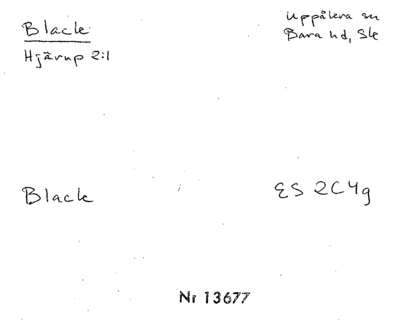 Black
Uppåkra sn
Hjärup 2:1
Bara hd, Sk
Black
ES 2C4g
Nr 13677